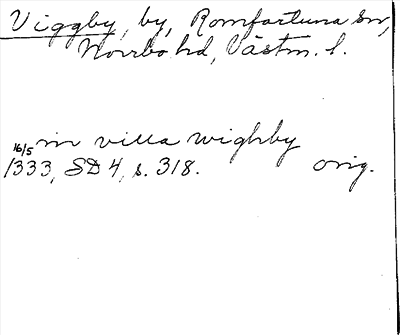 Viggby, by, Romfartuna sn,
Norrbo hd, Västm. l.
in villa wighby
16/5 1333, SD 4, s. 318. orig.